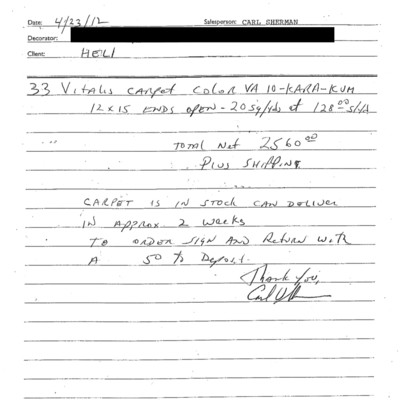 Date: 4/23/12 Salesperson: CARL SHERMAN
Decorator:
Client: HELI
33 VITALIS CARPET COLOR VA 10-KARA-KUM
12 x 15 ENDS OPEN - 20 sq/yds at 128.00 s/yd
TOTAL Net 2560.00
PLUS SHIPPING
CARPET IS IN STOCK CAN DELIVER
IN APPROX 2 WEEKS
TO ORDER SIGN AND RETURN WITH
A 50 % Deposit.
Thank You,
Carl